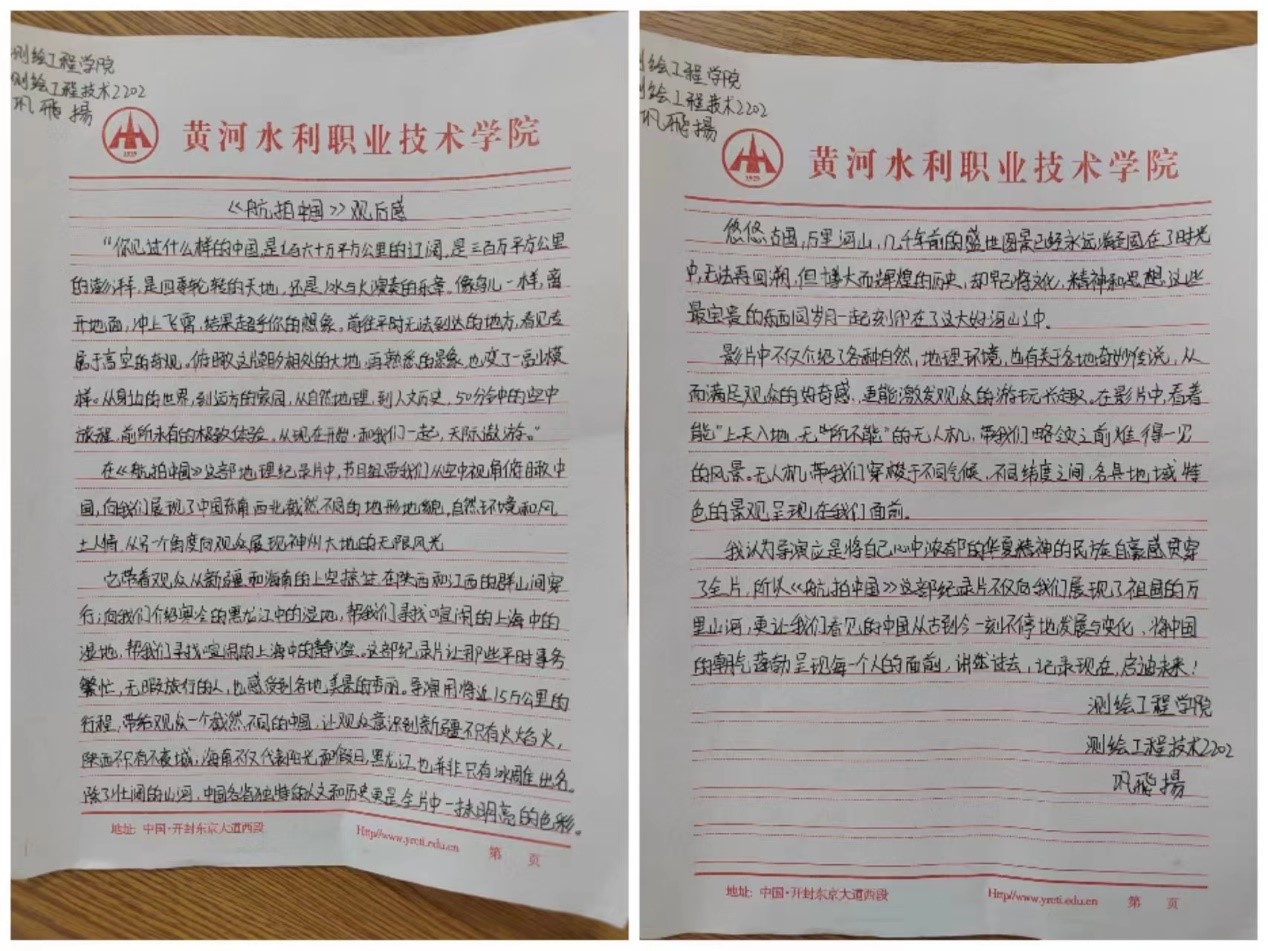 测绘工程学院
测绘工程技术2202
巩飛揚
1929
黄河水利职业技术学院
《航拍中国》观后感
“你见过什么样的中国,是960六十万平方公里的辽阔,是三百万平方公里
的澎湃,是四季轮轮的天地,还是冰与火演奏的乐章。像鸟儿一样,离
开地面,冲上飞霄,结果超乎你的想象。前往平时无法到达的地方,看见专
属于高空的奇观。俯瞰这片朝夕相处的大地,再熟悉的景象也变了一副模
样。从身边的世界,到远方的家园,从自然地理,到人文历史,50分钟的空中
旅程,前所未有的极致体验。从现在开始,和我们一起,天际遨游。”
在《航拍中国》这部地理纪录片中,节目组带我们从空中视角俯瞰中
国,向我们展现了中国东南西北截然不同的地形地貌,自然环境和风
土人情,从另一个角度向观众展现神州大地的无限风光
它带着观众从新疆和海南的上空掠过,在陕西和江西的群山间穿
行;向我们介绍奥令的黑龙江中的湿地,帮我们寻找喧闹的上海中的
湿地,帮我们寻找喧闹的上海中的静谧。这部纪录片让那些平时事务
繁忙,无暇旅行的人,也感受到各地美景的秀丽。导演用将近15万公里的
行程,带给观众一个截然不同的中国,让观众意识到新疆不只有火焰火,
陕西不只有不夜城,海南不仅代表阳光和假日,黑龙江也并非只有冰周住出名。
除了壮阔的山河,中国各省独特的人文和历史更是全片中一抹明亮的色彩。
地址: 中国·开封东京大道西段
Http//www.yrcti.edu.cn
第 页
测绘工程学院
测绘工程技术2202
巩飛揚
1929
黄河水利职业技术学院
悠悠古国,万里河山,几千年前的盛世图景已经永远凝固在了时光
中,无法再回溯,但博大而辉煌的历史,却早已将文化,精神和思想,这些
最宝贵的东西同岁月一起刻印在了这大好河山之中。
影片中不仅介绍了各种自然,地理环境,也有关于各地奇妙传说,从
而满足观众的好奇感,更能激发观众的游玩兴趣。在影片中,看着
能“上天入地,无所不能”的无人机,带我们略领之前难得一见
的风景。无人机带我们穿梭于不同气候,不同纬度之间,各具地域特
色的景观呈现在我们面前。
我认为导演应是将自己心中浓郁的华夏精神的民族自豪感贯穿
了全片,所以《航拍中国》这部纪录片不仅向我们展现了祖国的万
里山河,更让我们看见的中国从古到今一刻不停地发展与变化,将中国
的朝气蓬勃呈现每一个人的面前,讲述过去,记录现在,启迪未来!
测绘工程学院
测绘工程技术2202
巩飛揚
地址: 中国·开封东京大道西段
Http//www.yrcti.edu.cn
第 页